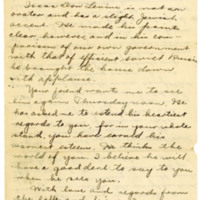 Isaac Don Levine is not an
orator and has a slight Jewish
accent. He made his points
clear, however, and in his com-
parison of our own government
with that of efficient soviet Russia
he brought the house down
with applause.
Your friend wants me to see
him again Thursday noon. He
has asked me to extend his heartiest
regards to you, for in your whole
stand, you have earned his
warmest esteem. He thinks the
world of you. I believe he will
have a good deal to say to you
when he sees you.
With love and regards from
the folks and